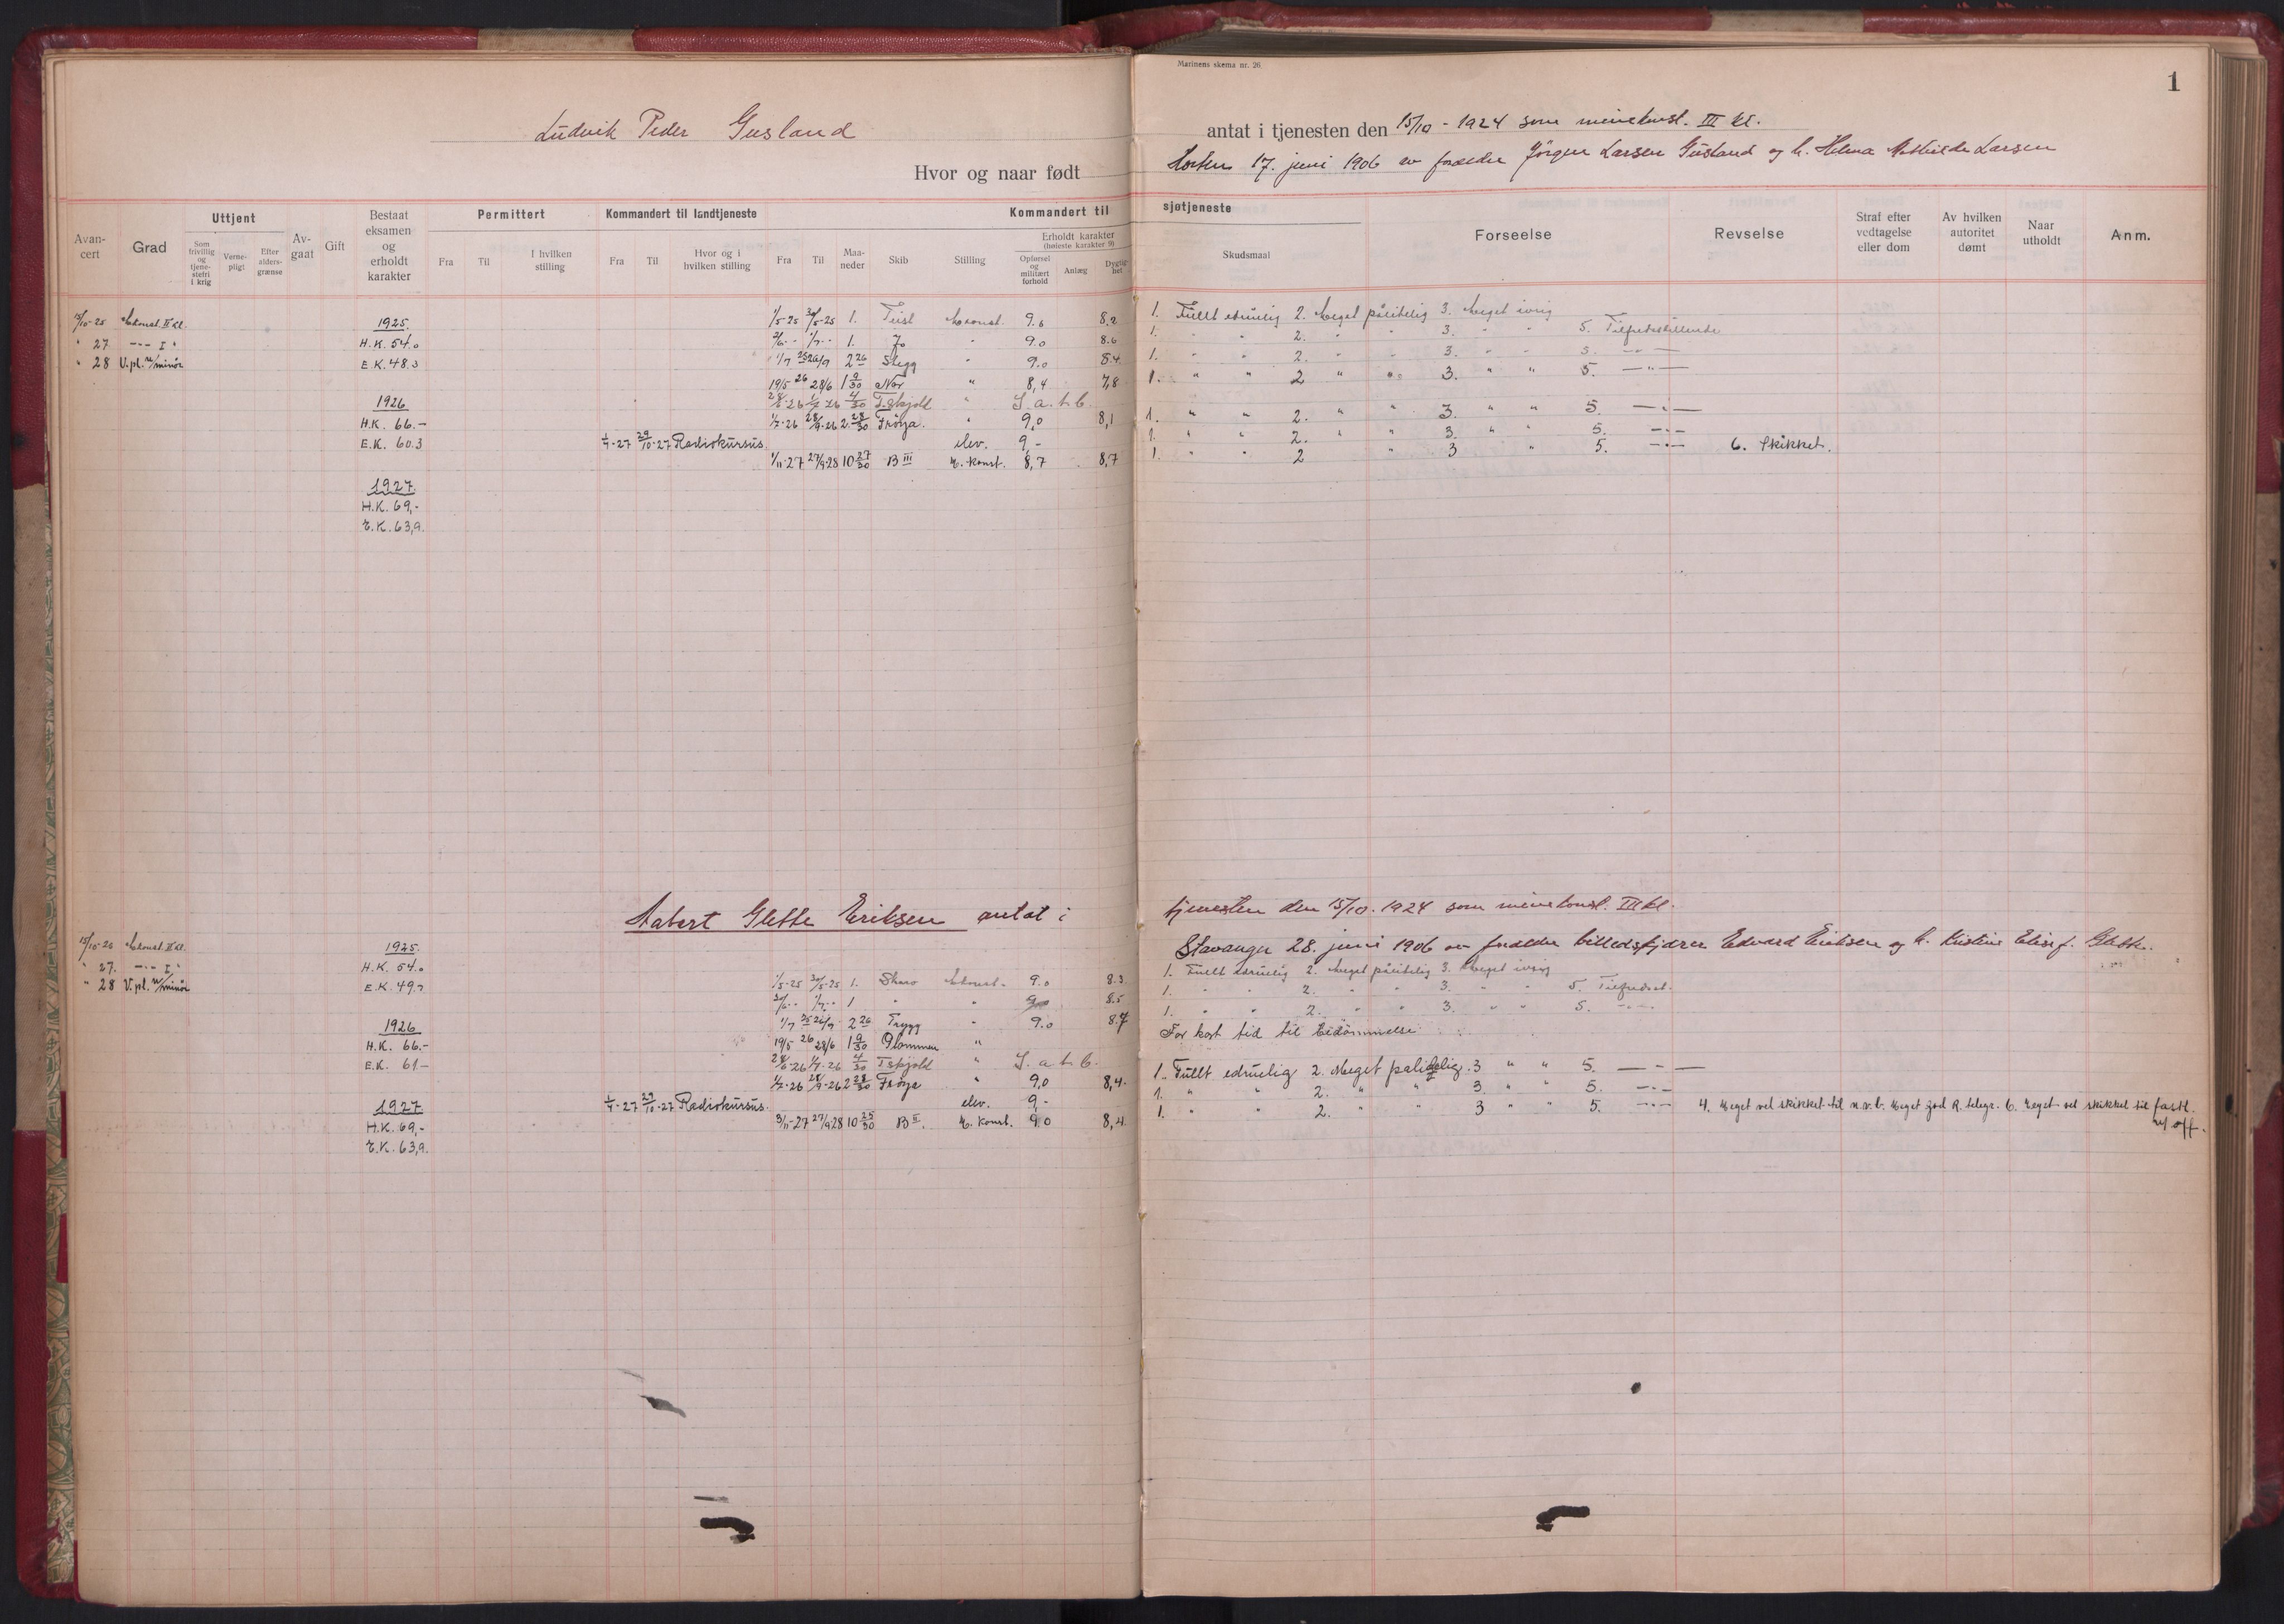 Marinens skema nr. 26
1
Ludvik Peder Gusland antat i tjenesten den 15/10 - 1924 som minekonst. III kl.
Hvor og naar født Horten 17. juni 1906 av forældre Jörgen Larsen Gusland og h. Helma Mathilde Larsen
Uttjent Permittert Kommandert til landtjeneste Kommandert til sjøtjeneste
Avancert Grad Som frivillig og tjenestefri i krig Vernepligt Efter aldersgrænse Avgaat Gift Bestaat eksamen og erholdt karakter Fra Til I hvilken stilling Fra Til Hvor og i hvilken stilling Fra Til Maaneder Skib Stilling Erholdt karakter (høieste karakter 9) Opførsel og militært forhold Anlæg Dygtighet Skudsmaal Forseelse Revselse Straf efter vedtagelse eller dom Av hvilken autoritet dømt Naar utholdt Anm.
15/10-25 M.konst. II kl. 1925. 1/5-25 30/5-25 1. Teist M.konst. 9.0 8.2 1. Fullt edruelig 2. Meget pålitelig 3. Meget ivrig
" 27 -"- I " H.K. 54.0 1/7 1. Jo " 9.0 8.6 1. " " 2. " " 3. " " 5. Tilfredsstillende
" 28 V.pl. u/minör E.K. 48.3 1/7 25 26/9 2 26 Stegg " 9.0 8.4 1. " " 2. " " 3. " " 5. -"-
19/5 26 28/6 1 9/30 Nor " 8,4 7,8 1. " " 2 " " 3. " " 5. -"-
1926 28/6-26 1/7 26 4/30 T.skjold " S.a.t.b.
H.K. 66.- 1/7-26 28/9-26 2 28/30 Fröya. " 9,0 8,1 1. " " 2. " " 3. " " 5. -"-
E.K. 60.3 1/4-27 29/10-27 Radiokursus. elev. 9,- 1. " " 2. " " 3. " " 5. -"-
1/11-27 27/9-28 10 27/30 B III M. konst. 8,7 8,7 1. " " 2 " 3 " 5. -"- 6. Skikket.
1927.
H.K. 69,-
E.K. 63,9.
Glette Eriksen antat i tjenesten den 15/10. 1924 som minekonst. III kl.
Stavanger 28. juni 1906 av forældre billedskjærer Edvard Eriksen og h. Kristine Elise f. Glette.
15/10-25 M.konst. II kl. 1925.
" 27. -"- I " H.K. 54.0 1. Fullt edruelig 2. Meget pålitelig 3. Meget ivrig
" 28 V.pl. u/minör E.K. 49.7 1/5-25 30/5-25 1. Skarv M.konst. 9.0 8.3 1. " " 2. " " 3. " " 5. Tilfredsst.
1/7 1 " " 9.0 8.5 1. " " 2. " " 3. " " 5. -"-
1926 1/7 25 26/9 2 26 Trygg " 9.0 8.7 For kort tid til bedömmelse
H.K. 66.- 19/5 26 28/6 1 9/30 Glommen "
E.K. 61.- 28/6-26 1/7-26 4/30 T.skjold " S.a.t.b. 1. Fullt edruelig 2. Meget palidelig. 3 " " 5. -"-
1/7-26 28/9-26 2 28/30 Fröya " 9,0 8,4. 1. " " 2. " " 3. " " 5. -"-
1927 1/4-27 29/10-27 Radiokursus. elev. 9,- 1. " " 2. " " 3 " " 5. -"- 4. Meget vel skikket til u.v.b. Meget god R. telegr. 6. Meget vel skikket til fastl.
H.K. 69,- 3/11-27 27/9 28 10 25/30 B II. M. konst. 9.0 8,4. u/off.
E.K. 63,9.